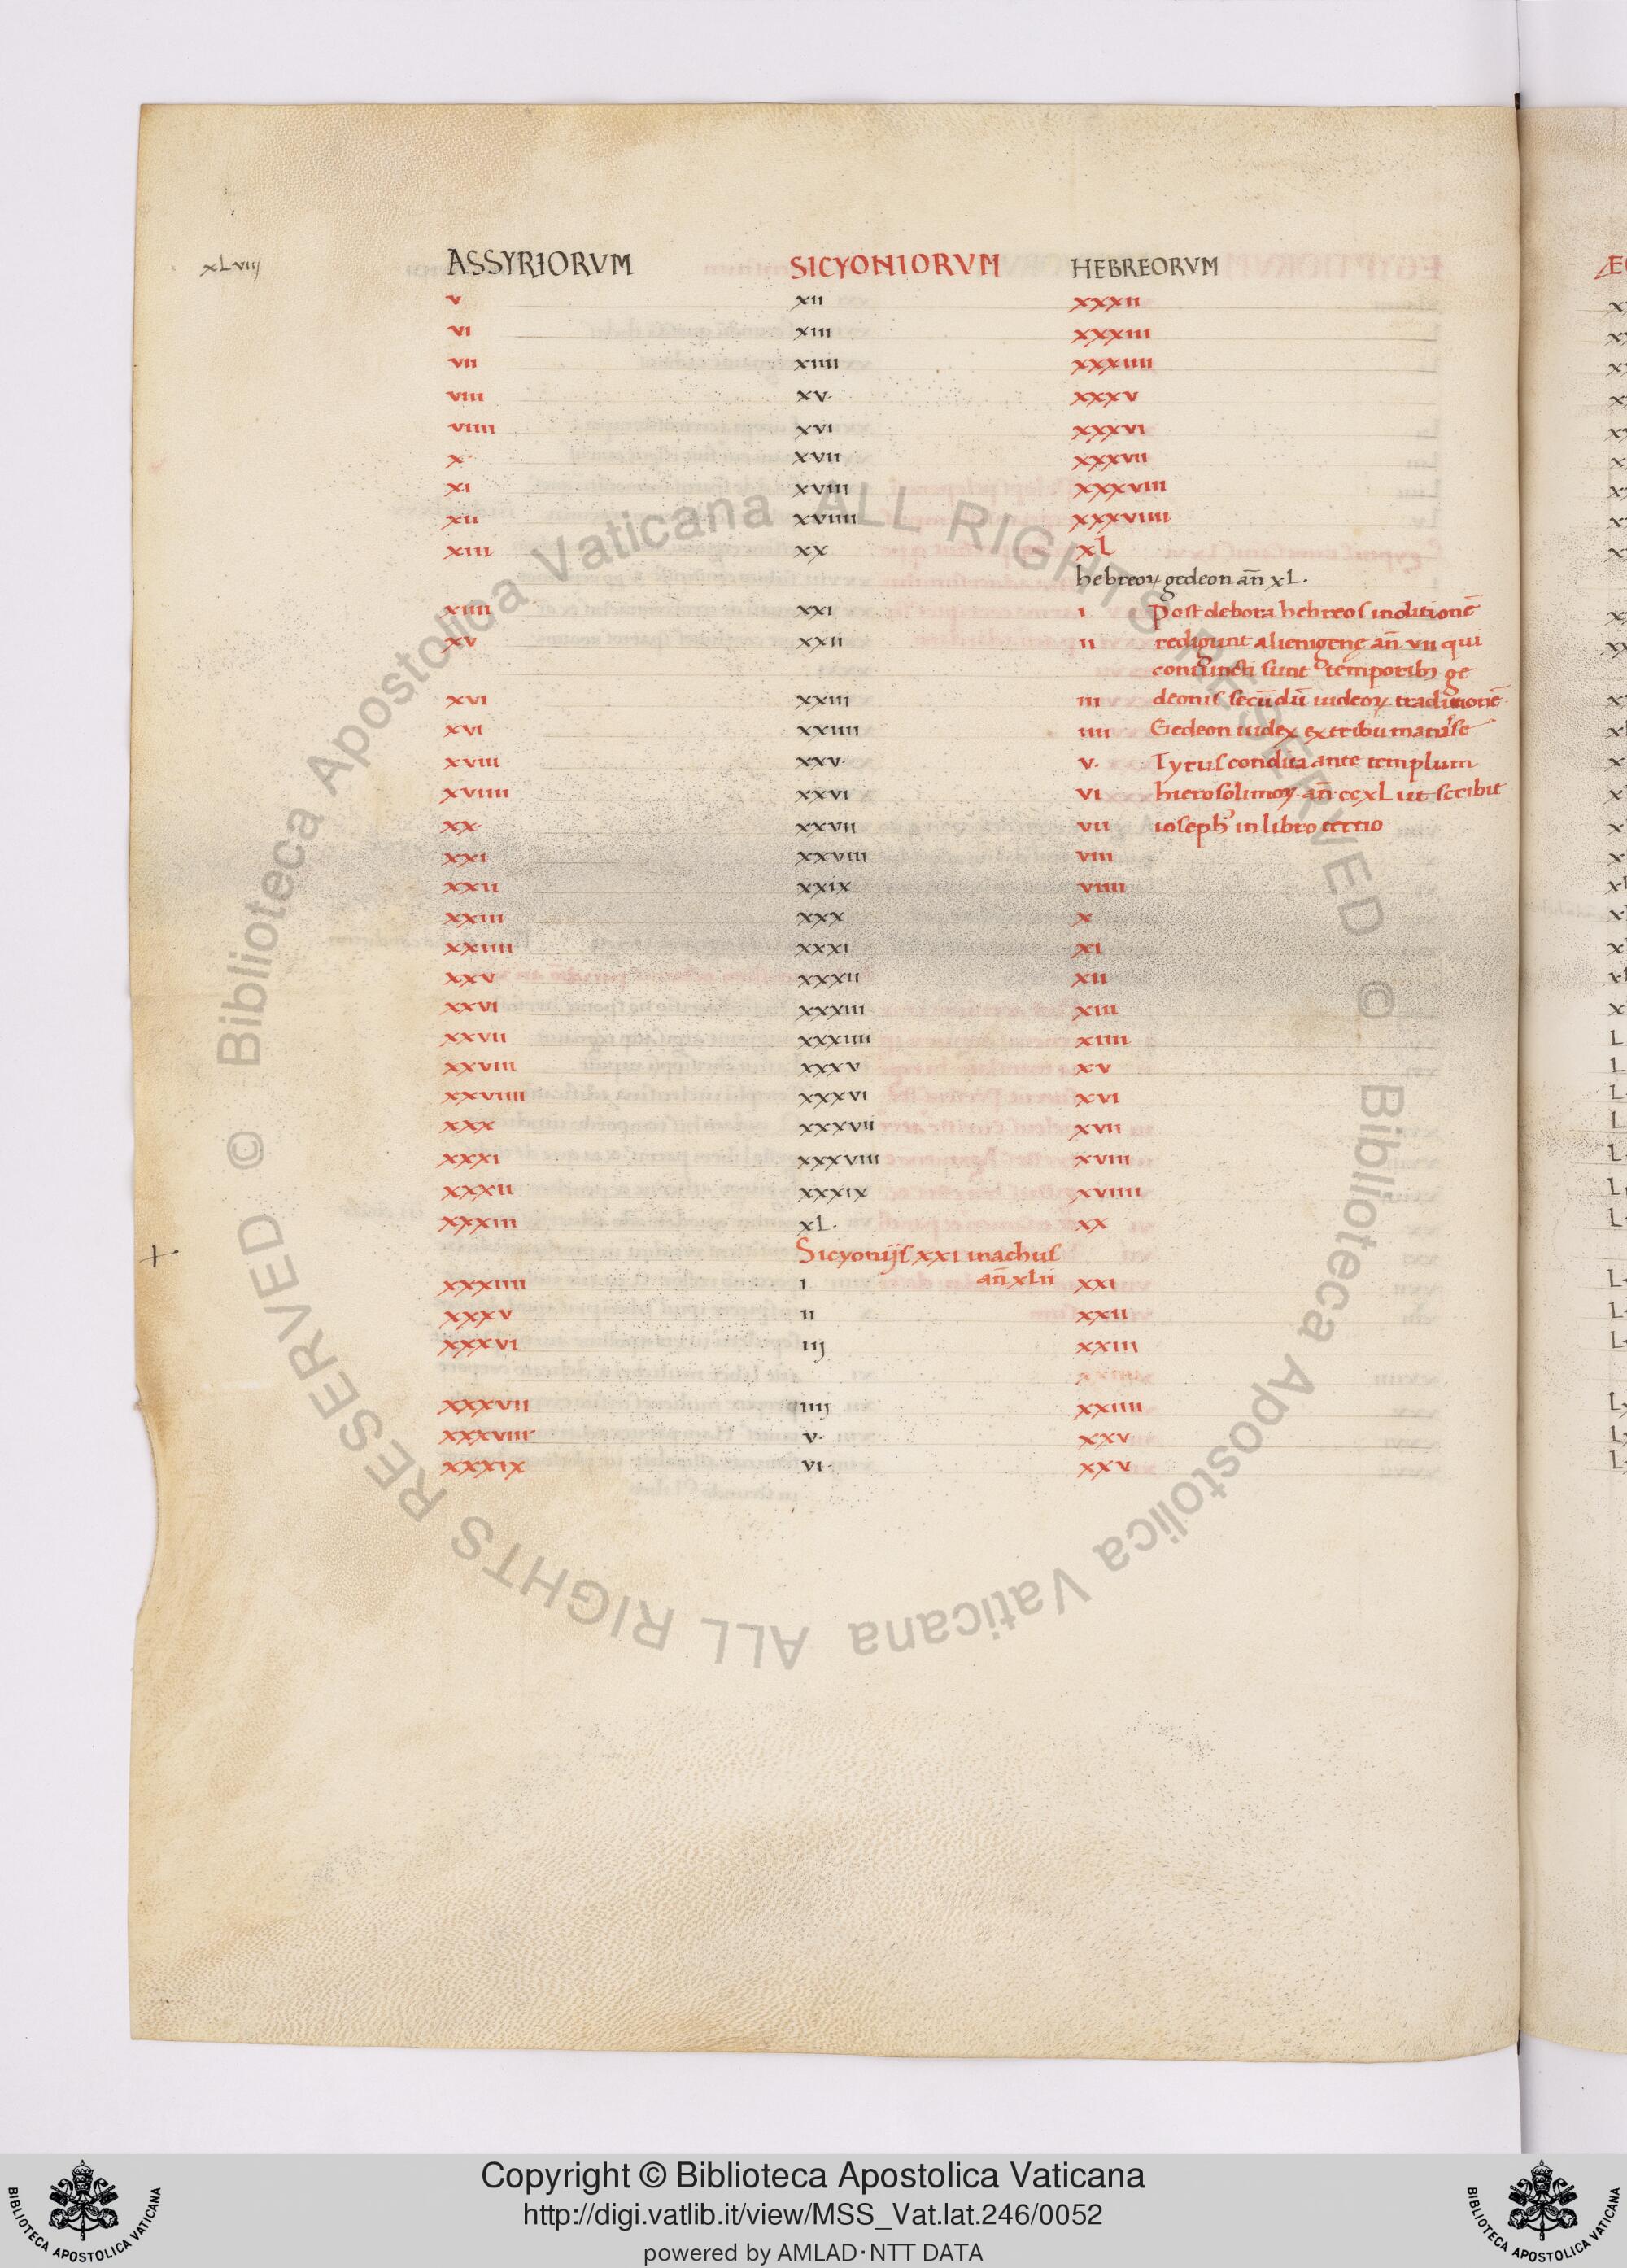 xLviij ASSYRIORVM SICYONIORVM HEBREORVM
v xii xxxii
vi xiii xxxiii
vii xiiii xxxiiii
viii xv· xxxv
viiii xvi xxxvi
x· xvii xxxvii
xi xviii xxxviii
xii xviiii xxxviiii
xiii xx xl
hebreoꝝ gedeon an̄ xL.
xiiii xxi i Post debora hebreos inditionē
xv xxii ii redigunt alienigenę an̄ vii qui
coniuncti sunt temporibꝫ ge
xvi xxiii iii deonis secūdū iudeoꝝ traditionē
xvi xxiiii iiii Gedeon iudex ex tribu manasse
xviii xxv· v· Tyrus condita ante templum
xviiii xxvi vi hierosolimoꝝ an̄ ccxL ut scribit
xx· xxvii vii ioseph' in libro tertio
xxi xxviii viii
xxii xxix viiii
xxiii xxx x
xxiiii xxxi xi
xxv xxxii xii
xxvi xxxiii xiii
xxvii xxxiiii xiiii
xxviii xxxv xv
xxviiii xxxvi xvi
xxx xxxvii xvii
xxxi xxxviii xviii
xxxii xxxix xviiii
xxxiii xL. xx
Sicyonijs xxi inachus
an̄ xLii
xxxiiii i xxi
xxxv ii xxii
xxxvi iij xxiii
xxiiii
xxxvii iiij xxiiii
xxxviii v· xxv
xxxix vi· xxv
© Biblioteca Apostolica Vaticana ALL RIGHTS RESERVED © Biblioteca Apostolica Vaticana ALL RIGHTS RESERVED
Copyright © Biblioteca Apostolica Vaticana
http://digi.vatlib.it/view/MSS_Vat.lat.246/0052
powered by AMLAD·NTT DATA
BIBLIOTECA APOSTOLICA VATICANA
BIBLIOTECA APOSTOLICA VATICANA